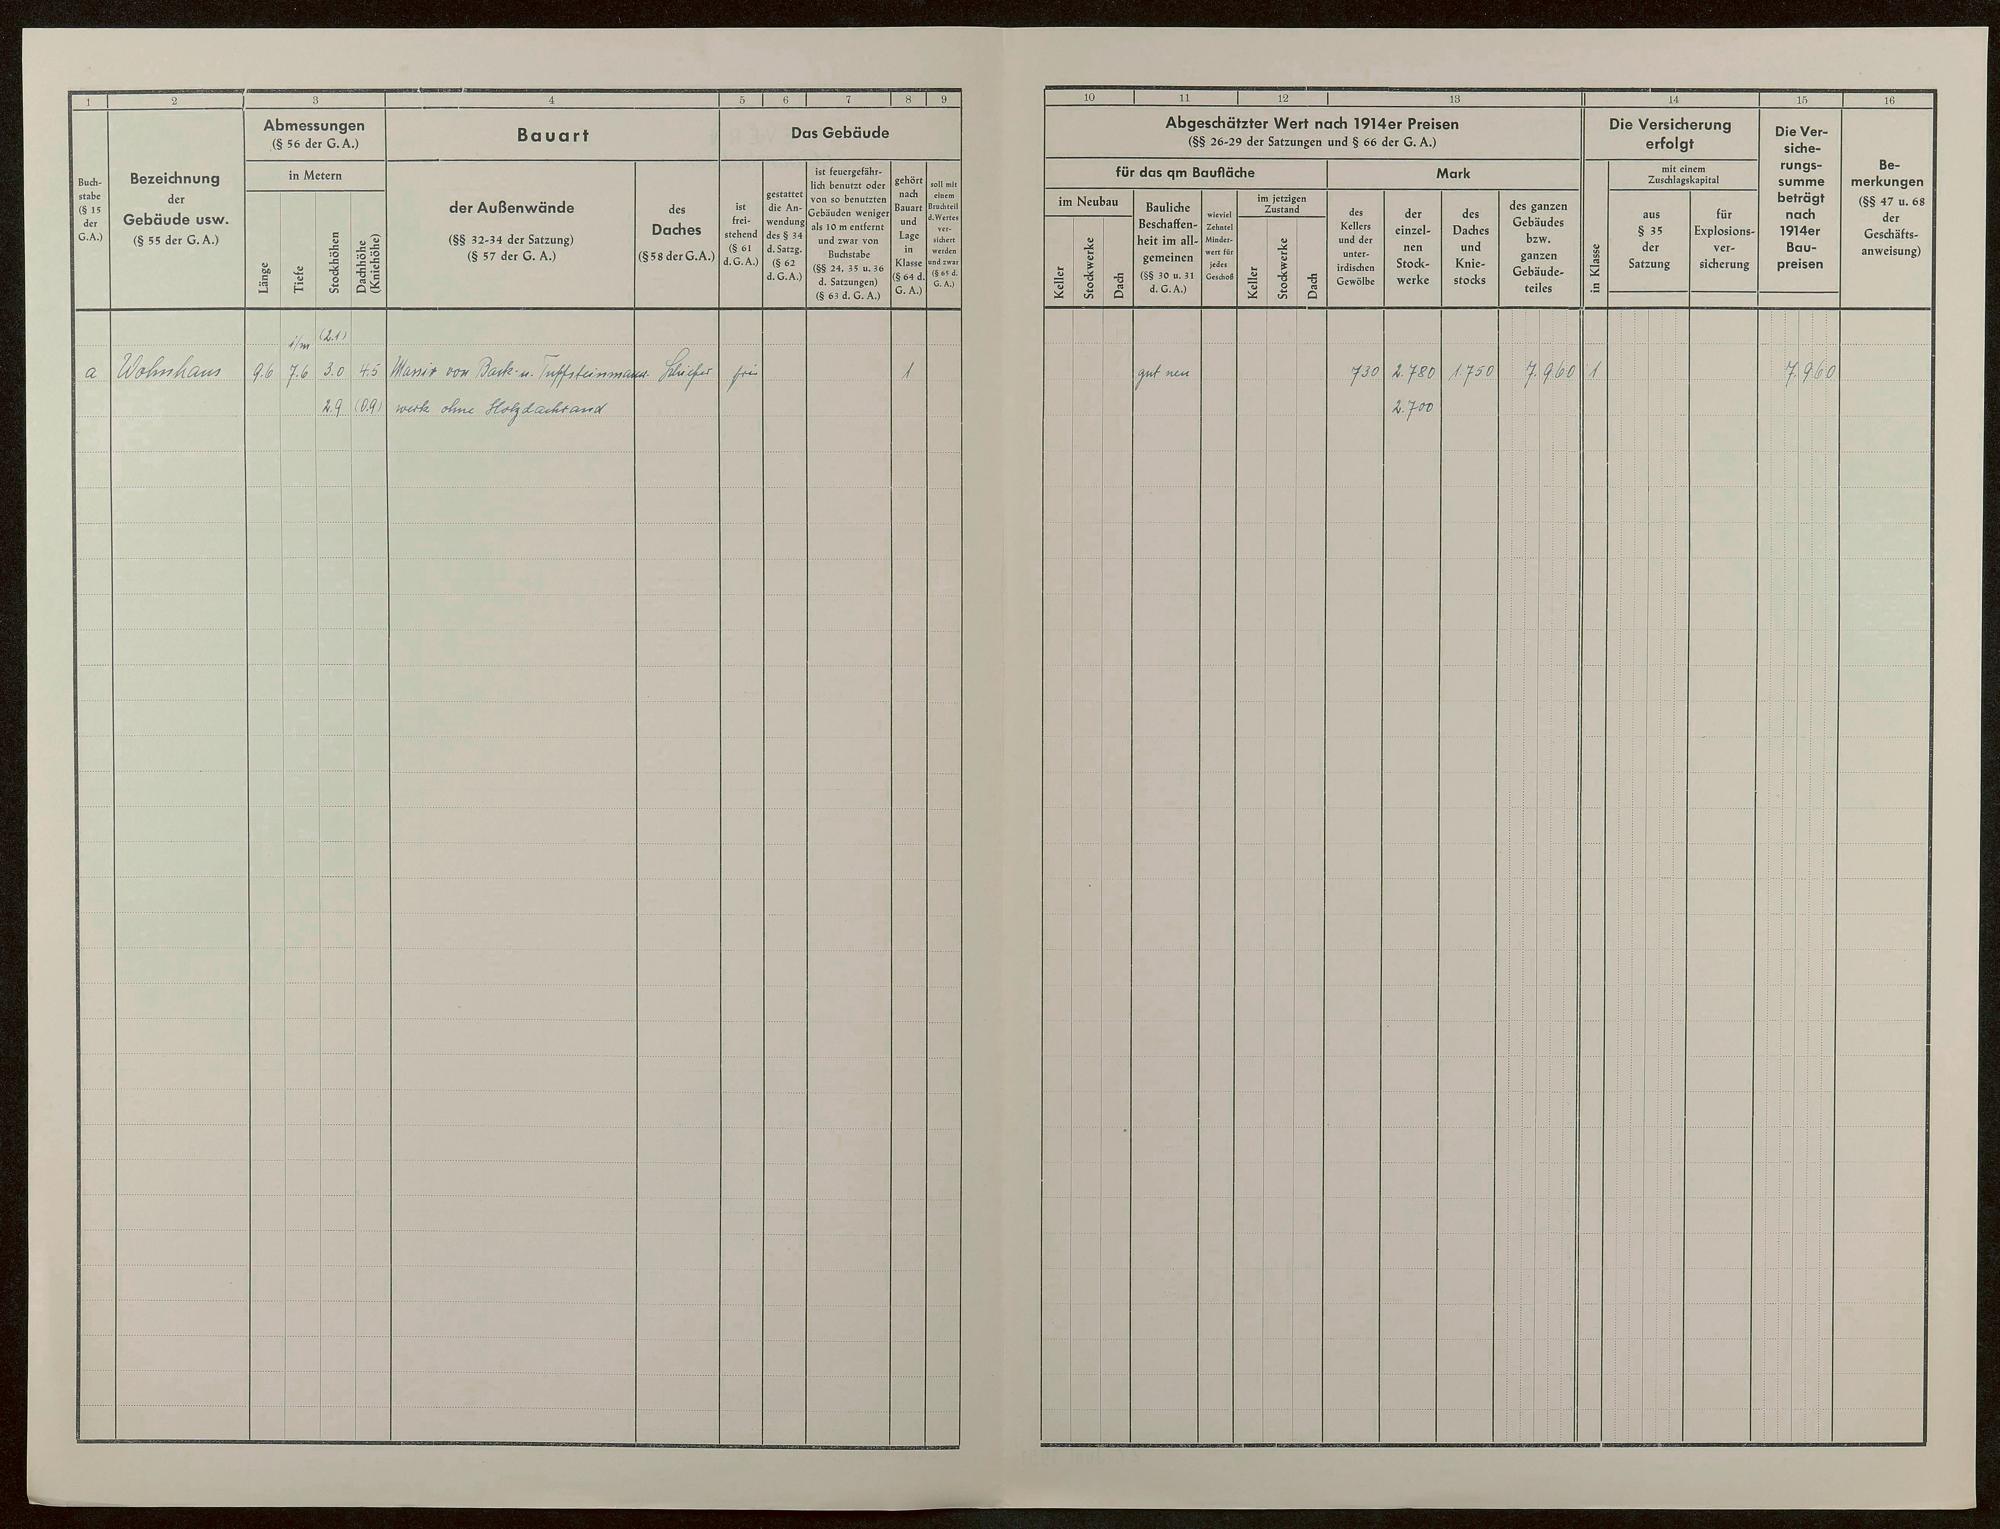 1 2 3 4 5 6 7 8 9
Buch-
stabe
(§ 15
der
G.A.)
Bezeichnung
der
Gebäude usw.
(§ 55 der G. A.)
Abmessungen
(§ 56 der G. A.)
in Metern
Länge
Tiefe
Stockhöhen
Dachhöhe
(Kniehöhe)
Bauart
der Außenwände
(§§ 32-34 der Satzung)
(§ 57 der G. A.)
des
Daches
(§ 58 der G. A.)
Das Gebäude
ist
frei-
stehend
(§ 61
d. G. A.)
gestattet
die An-
wendung
des § 34
d. Satzg.
(§ 62
d. G. A.)
ist feuergefähr-
lich benutzt oder
von so benutzten
Gebäuden weniger
als 10 m entfernt
und zwar von
Buchstabe
(§§ 24, 35 u. 36
d. Satzungen)
(§ 63 d. G. A.)
gehört
nach
Bauart
und
Lage
in
Klasse
(§ 64 d.
G. A.)
soll mit
einem
Bruchteil
d. Wertes
ver-
sichert
werden
und zwar
(§ 65 d.
G. A.)
i/m (2.1)
a Wohnhaus 9.6 7.6 3.0 4.5 Massiv von Back- u. Tuffsteinmauer- Schiefer frei 1
2.9 (0.9) werk ohne Holzdachrand
10 11 12 13 14 15 16
Abgeschätzter Wert nach 1914er Preisen
(§§ 26-29 der Satzungen und § 66 der G. A.)
für das qm Baufläche
im Neubau
Keller
Stockwerke
Dach
Bauliche
Beschaffen-
heit im all-
gemeinen
(§§ 30 u. 31
d. G. A.)
wieviel
Zehntel
Minder-
wert für
jedes
Geschoß
im jetzigen
Zustand
Keller
Stockwerke
Dach
Mark
des
Kellers
und der
unter-
irdischen
Gewölbe
der
einzel-
nen
Stock-
werke
des
Daches
und
Knie-
stocks
des ganzen
Gebäudes
bzw.
ganzen
Gebäude-
teiles
Die Versicherung
erfolgt
in Klasse
mit einem
Zuschlagskapital
aus
§ 35
der
Satzung
für
Explosions-
ver-
sicherung
Die Ver-
siche-
rungs-
summe
beträgt
nach
1914er
Bau-
preisen
Be-
merkungen
(§§ 47 u. 68
der
Geschäfts-
anweisung)
gut neu 730 2.780 1.750 7.960 1 7.960
2.700